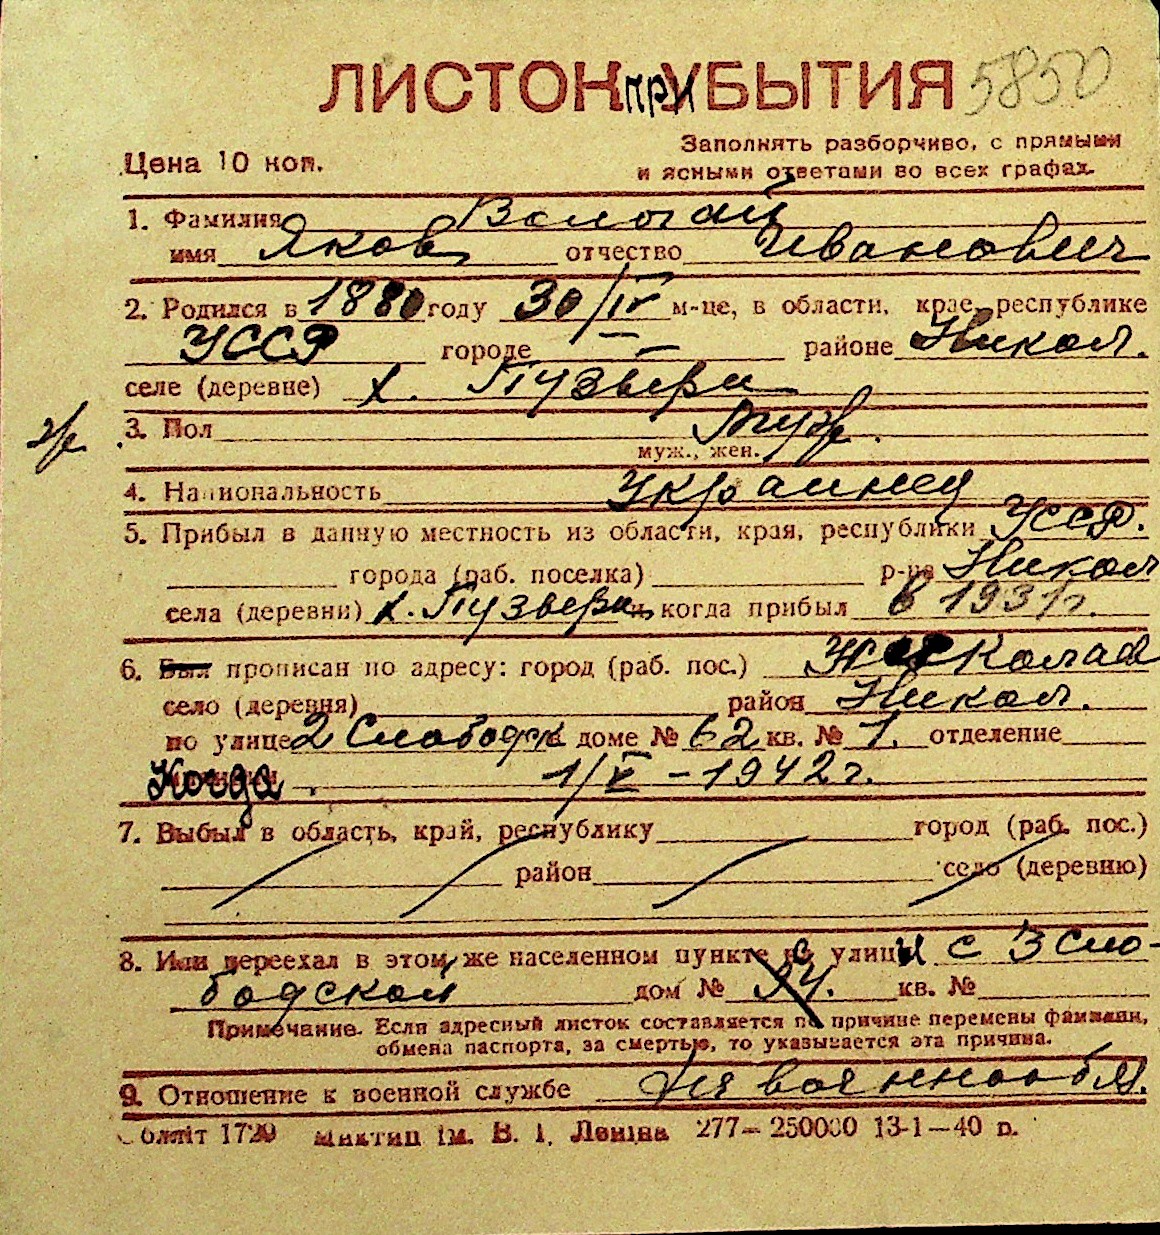 ЛИСТОК ПРИ УБЫТИЯ 5850
Цена 10 коп.
Заполнять разборчиво, с прямыми
и ясными ответами во всех графах.
1. Фамилия
имя Яков отчество Иванович
2. Родился в 1880 году 30/IV м-це, в области, крае, республике
УССР городе — районе Никол.
селе (деревне) х. Пузыери
3. Пол Муж.
муж., жен.
4. Национальность Украинец
5. Прибыл в данную местность из области, края, республики УССР.
города (раб. поселка) р-на Никол
села (деревни) х. Пузыери и когда прибыл в 1931г.
6. Был прописан по адресу: город (раб. пос.) Николаев
село (деревня) район Никол.
по улице 2 Слободск доме № 62 кв. № 1. отделение
Когда 1/V - 1942 г.
7. Выбыл в область, край, республику город (раб. пос.)
район село (деревню)
8. Или переехал в этом же населенном пункте с улицы с 3 Сло-
бодской дом № 34. кв. №
Примечание. Если адресный листок составляется по причине перемены фамилии,
обмена паспорта, за смертью, то указывается эта причина.
9. Отношение к военной службе Не военнообя.
Облліт 1729 Міктип ім. В. І. Леніна 277—250000 13-1—40 р.